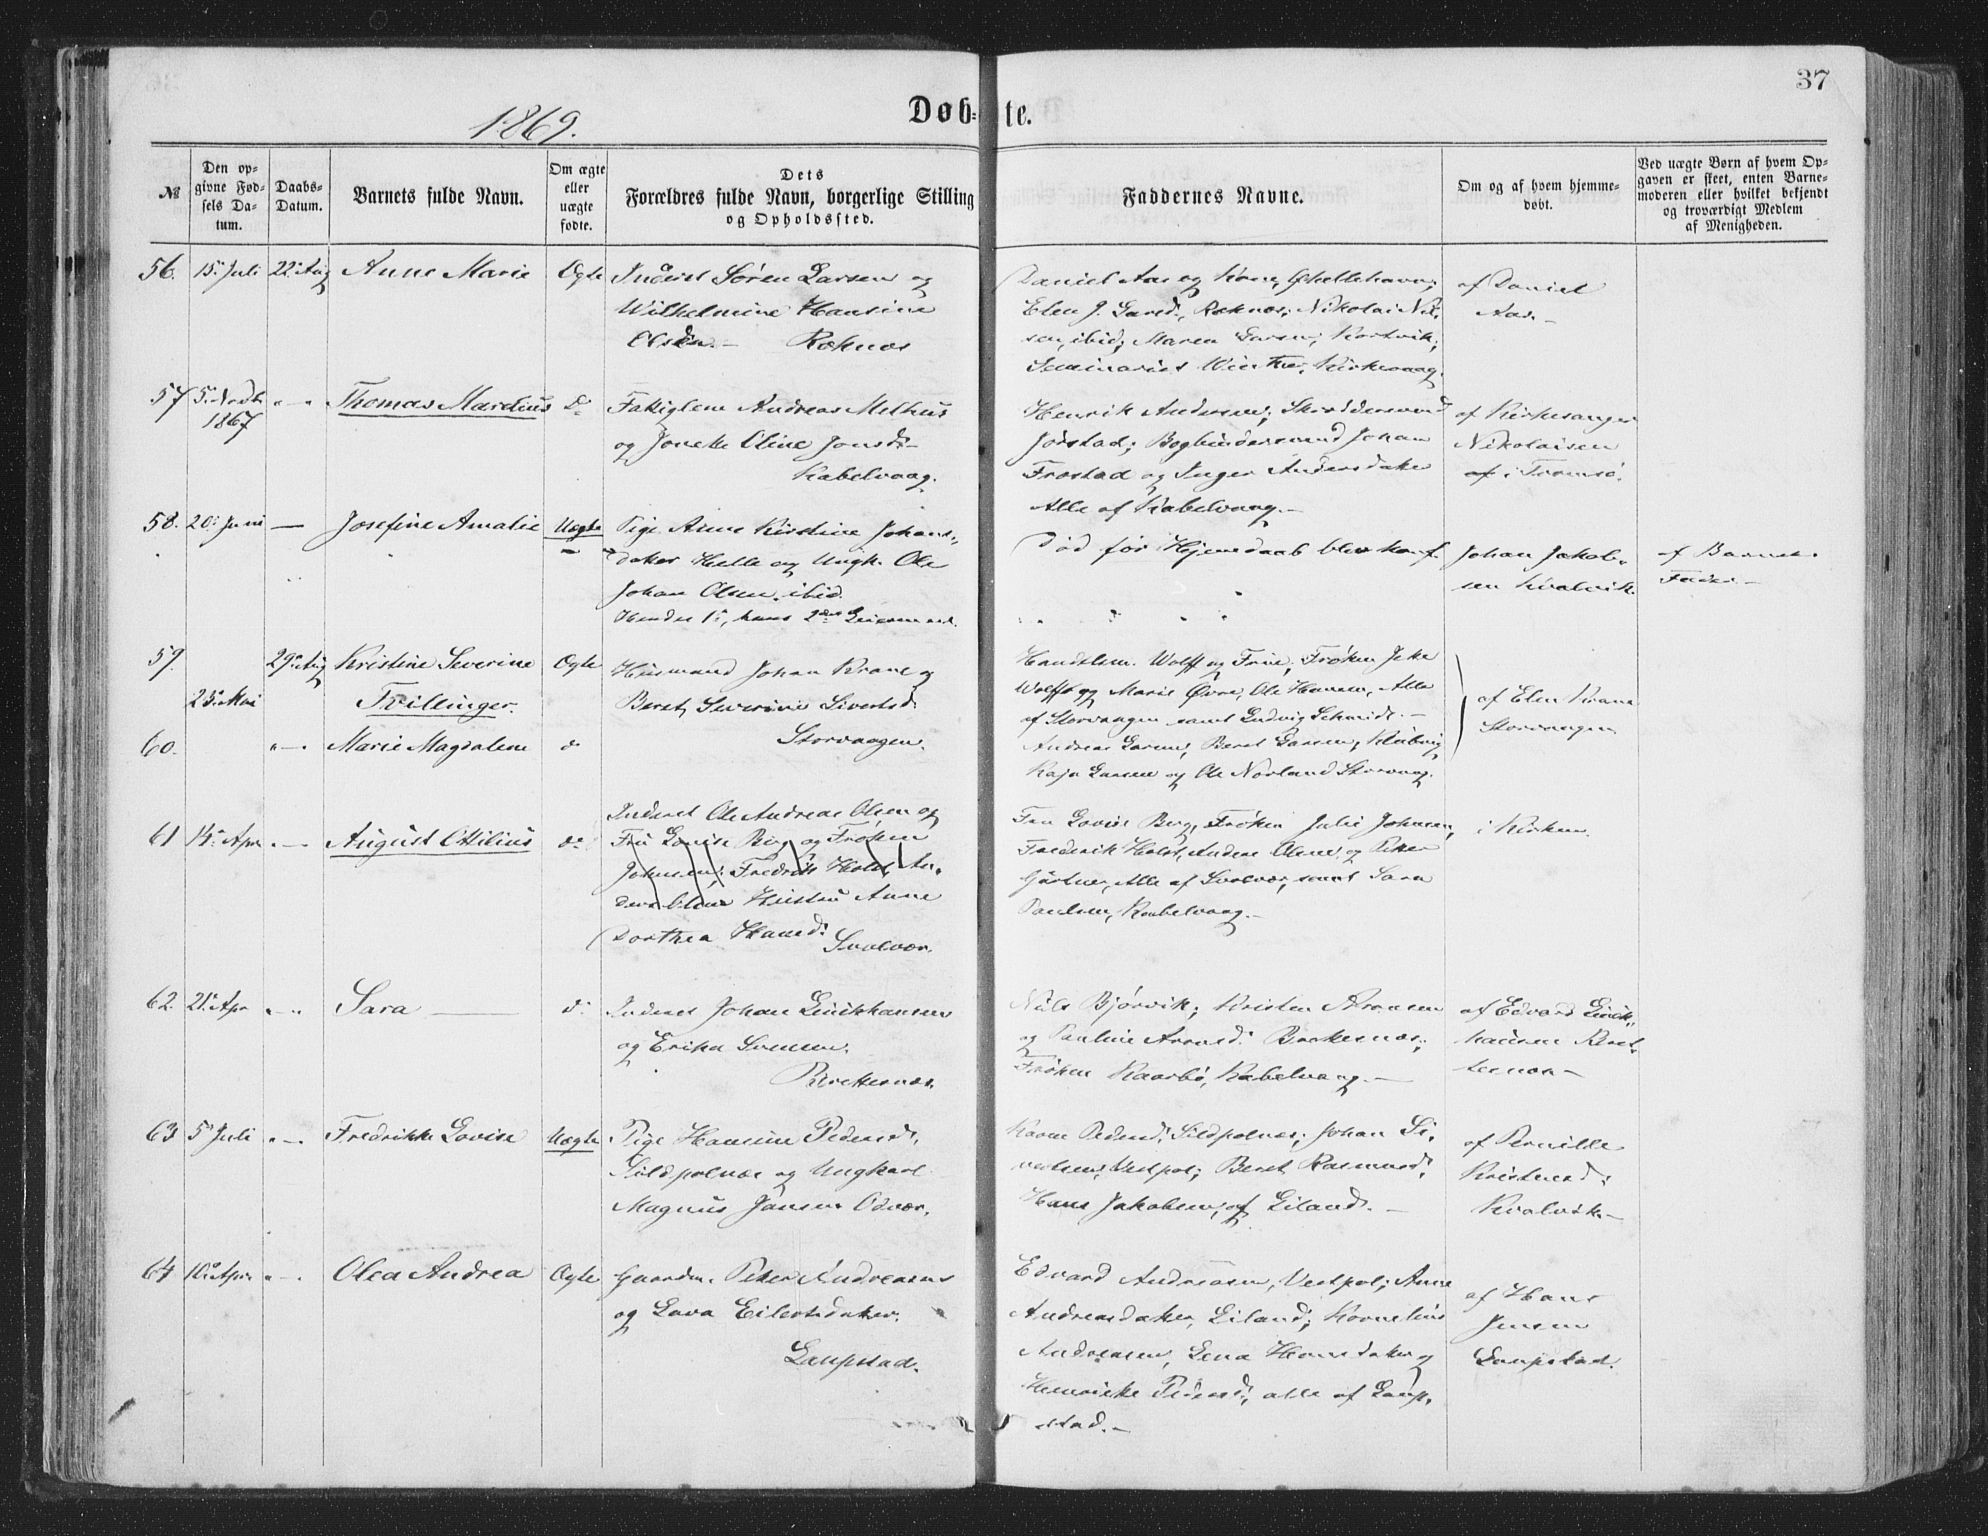 37
1869.
Døb-te.
№
Den opgivne Fødsels Datum.
Daabs-Datum.
Barnets fulde Navn.
Om ægte eller uægte fødte.
Dets Forældres fulde Navn, borgerlige Stilling og Opholdssted.
Faddernes Navne.
Om og af hvem hjemmedøbt.
Ved uægte Børn af hvem Opgaven er skeet, enten Barnemoderen eller hvilket bekjendt og troværdigt Medlem af Menigheden.
56. 15. Juli 22. Aug Anne Marie Ægte
Inderst Søren Larsen og
Wilhelmine Hansine
Olsen. — Røknæs
Daniel Aas og Kone,
Elen J. Larsd., Røknæs; Nikolai Nil-
sen, ibid; Maren Larsen,
Seminarist Winther, Kirkevaag.
af Daniel
Aas. —
57 5. Novbr 1867 " — " Thomas Mardius do
Andreas Melhus
og Oline Jonsd. —
Kabelvaag.
Henrik Andersen,
Jørstad; Bogbindersvend Johan
Frostad og Inger Andersdatter
Alle af Kabelvaag. —
af Kirkesanger
Nikolaisen
af i Tromsø.
58. 20. Juni — Josefine Amalie Uægte
Pige Anne Kirstine Johans-
datter Helle og Ungk. Ole
Johan Olsen, ibid.
Hendes 1ste, hans 2det Leiermaal.
Død før Hjemdaab blev konf.
Johan Jakob-
sen Kvalvik.
af Barnets
Fader —
59. 29. Aug Kristine Severine Ægte
25. Mai Tvillinger.
60. " — Marie Magdalene do
Husmand Johan Krane og
Beret Severine Sivertsd.
Storvaagen.
Handelsm. Wolff og Frue, Frøken
Wolff og Marie Øvre, Ole Hansen, Alle
af Storvaagen samt Ludvig Schmidt. —
Andreas Larsen, Beret Larsen,
Kaja Larsen og Ole Norland Storvaag.
af Elen Krane
Storvaagen
61 14. Apr. " — August Ottilius do
Inderst Ole Andreas Olsen og
Fru Lovise Berg og Frøken
Johnsen; Fredrik Holst, An-
Hustru Anne
Dorthea Hansd.
Svolvær.
Fru Lovise Berg, Frøken Julie Johnsen,
Frederik Holst, Anders Olsen, og Peter
Gärtner, Alle af Svolvær, samt Sara
Paulsen, Kabelvaag. —
i Kirken.
62. 21. Apr " — " Sara — do
Inderst Johan Linikhausen
og Erika Svensen.
Brettesnæs.
Nils Bjørvik; Kristen Aronsen
og Pauline Aronsd. Brettesnæs;
Frøken Kaarbø, Kabelvaag. —
af Edvard Linik-
hausen Bret-
tesnæs —
63 5. Juli " — Fredrikke Lovise Uægte
Pige Hansine Pedersd.
Sildpolnæs og Ungkarl
Magnus Jansen
Karen Pedersd. Sildpolnæs; Johan Si-
vertsen, Vestpol; Beret Rasmusd.
Hans Jakobsen, af Liland. —
af Pernille
Kristensd.
Kvalvik —
64 10. Apr. " — Olea Andrea Ægte
Gaardm. Peter Andreasen
og Lava Eilertsdatter.
Laupstad.
Edvard Andreasen, Vestpol; Anne
Andreasdatter, Liland; Kornelius
Andreasen, Lena Hansdatter og
Henrikke Pedersd., alle af Laup-
stad. —
af Hans
Jensen
Laupstad.